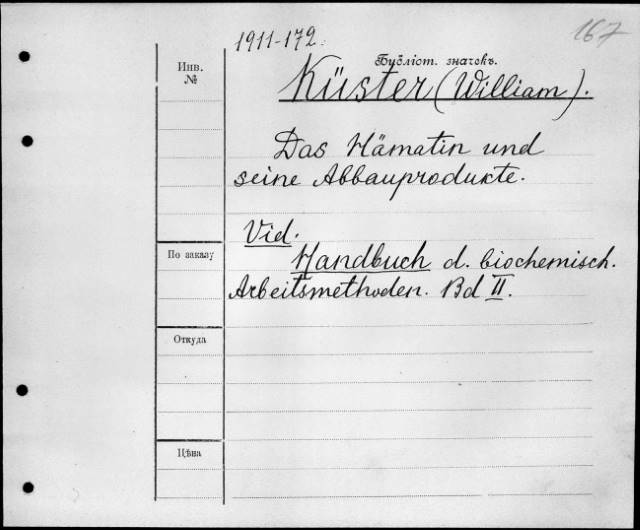 167
1911-172.
Инв.
№
Бубліот. значекъ.
Küster (William).
Das Hämatin und
seine Abbauprodukte.
Vid.
Handbuch d. biochemisch.
Arbeitsmethoden. Bd II.
По заказу
Откуда
Цѣна